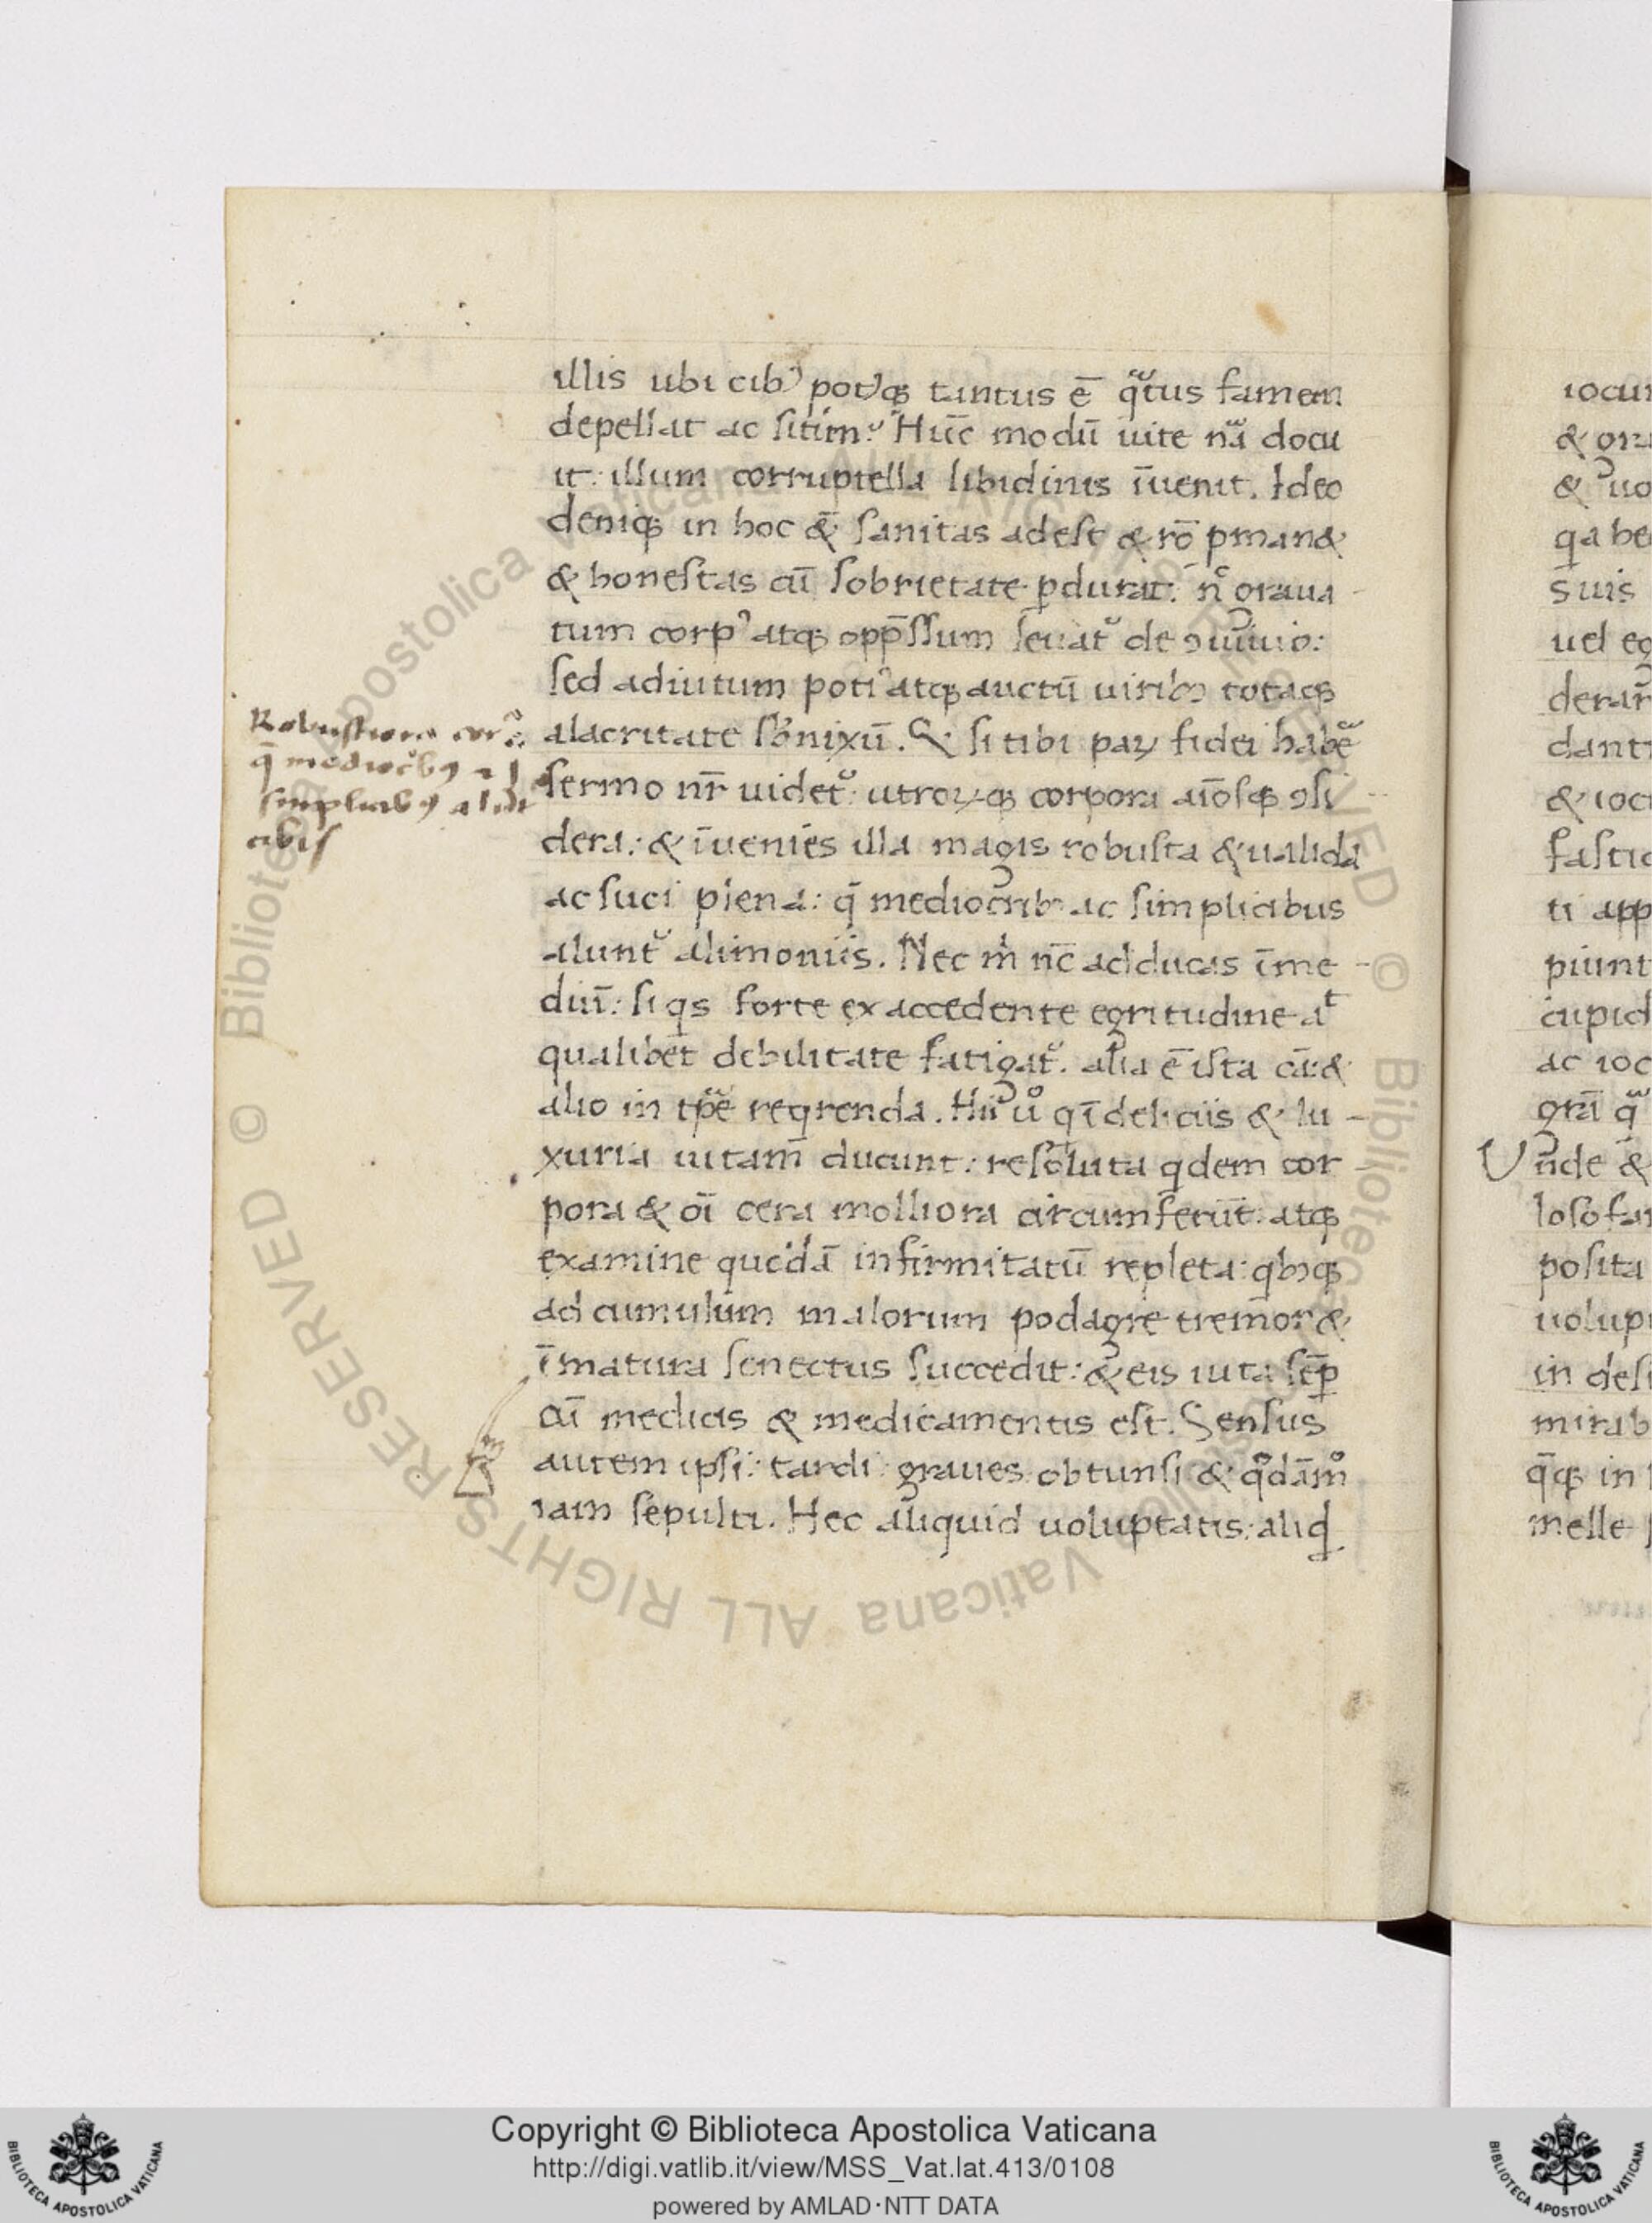 illis ubi cibꝰ potꝰqꝫ tantus ē qͣtus famem
depellat ac sitim. Hūc modū uite nām docu
it: illum corruptella libidinis īuenit. Ideo
deniqꝫ in hoc &̄ sanitas adest & rō ꝑman&
& honestas cū sobrietate ꝑdurat. n̄ graua
tum corpꝰ atqꝫ opp̄ssum leuat᷑ de ꝯuiuio:
sed adiutum potiꝰ atqꝫ auctū uiribꝫ totaqꝫ
alacritate sb̄nixū. & si tibi paꝝ fidei habē
sermo nr̄ uidet᷑: utroꝝqꝫ corpora aīosqꝫ ꝯsi
dera: & īuenies illa magis robusta & ualida
ac suci plena: q̄ mediocribꝫ ac simplicibus
alunt᷑ alimoniis. Nec m̍ nc̄ adducas īme
diū: si qs forte ex accedente egritudine aᵗ
qualibet debilitate fatigat᷑. alia ē ista cā: &
alio in tꝑe reqrenda. Hii uͦ q ī deliciis & lu
xuria uitam ducunt: resoluta qdem cor
pora & oī cera molliora circumferūt: atqꝫ
examine quodā infirmitatū repleta: qbꝫqꝫ
ad cumulum malorum podagre tremor &
īmatura senectus succedit: & eis uita semꝑ
cū medicis & medicamentis est. Sensus
autem ipsi: tardi: graues: obtunsi & qdāmͦ
iam sepulti. Hec aliquid uoluptatis: aliqd
Robustiora cor̄a
q̄ mediocribꝰ
simplicibꝰ
cibis
iocu
& gra
& uo
qa be
suis
uel eg
derar
danti
& ioc
fastid
ti app
piunt
cupid
ac ioc
grā qͣ
Unde &
losofa
posita
uolup
in desi
mirab
q̄qꝫ in
melle
© Biblioteca Apostolica Vaticana ALL RIGHTS RESERVED
© Biblioteca Apostolica Vaticana ALL RIGHTS RESERVED
Copyright © Biblioteca Apostolica Vaticana
http://digi.vatlib.it/view/MSS_Vat.lat.413/0108
powered by AMLAD·NTT DATA
BIBLIOTECA APOSTOLICA VATICANA
BIBLIOTECA APOSTOLICA VATICANA